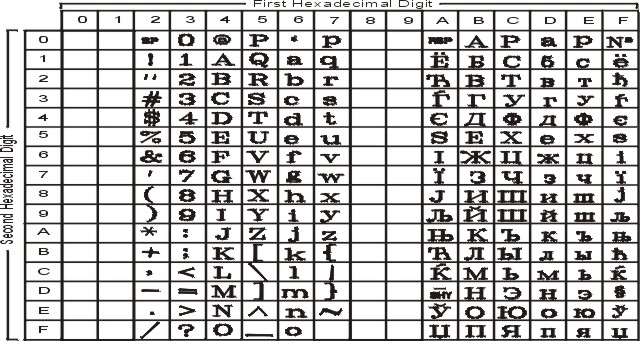 First Hexadecimal Digit
0 1 2 3 4 5 6 7 8 9 A B C D E F
Second Hexadecimal Digit
0 SP 0 @ P ` p NBSP А Р а р №
1 ! 1 A Q a q Ё Б С б с ё
2 " 2 B R b r Ђ В Т в т ђ
3 # 3 C S c s Ѓ Г У г у ѓ
4 $ 4 D T d t Є Д Ф д ф є
5 % 5 E U e u Ѕ Е Х е х ѕ
6 & 6 F V f v І Ж Ц ж ц і
7 ' 7 G W g w Ї З Ч з ч ї
8 ( 8 H X h x Ј И Ш и ш ј
9 ) 9 I Y i y Љ Й Щ й щ љ
A * : J Z j z Њ К Ъ к ъ њ
B + ; K [ k { Ћ Л Ы л ы ћ
C , < L \ l | Ќ М Ь м ь ќ
D - = M ] m } SHY Н Э н э §
E . > N ^ n ~ Ў О Ю о ю ў
F / ? O _ o Џ П Я п я џ